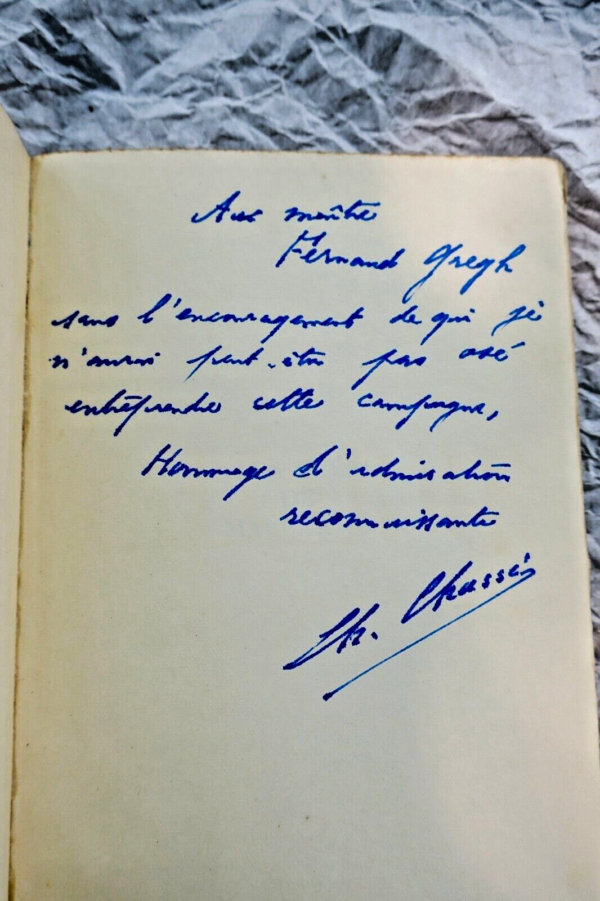 Au maître
Fernand Gregh
sans l'encouragement de qui je
n'aurais peut-être pas osé
entreprendre cette campagne,
Hommage d'admiration
reconnaissante
Ch. Chassé